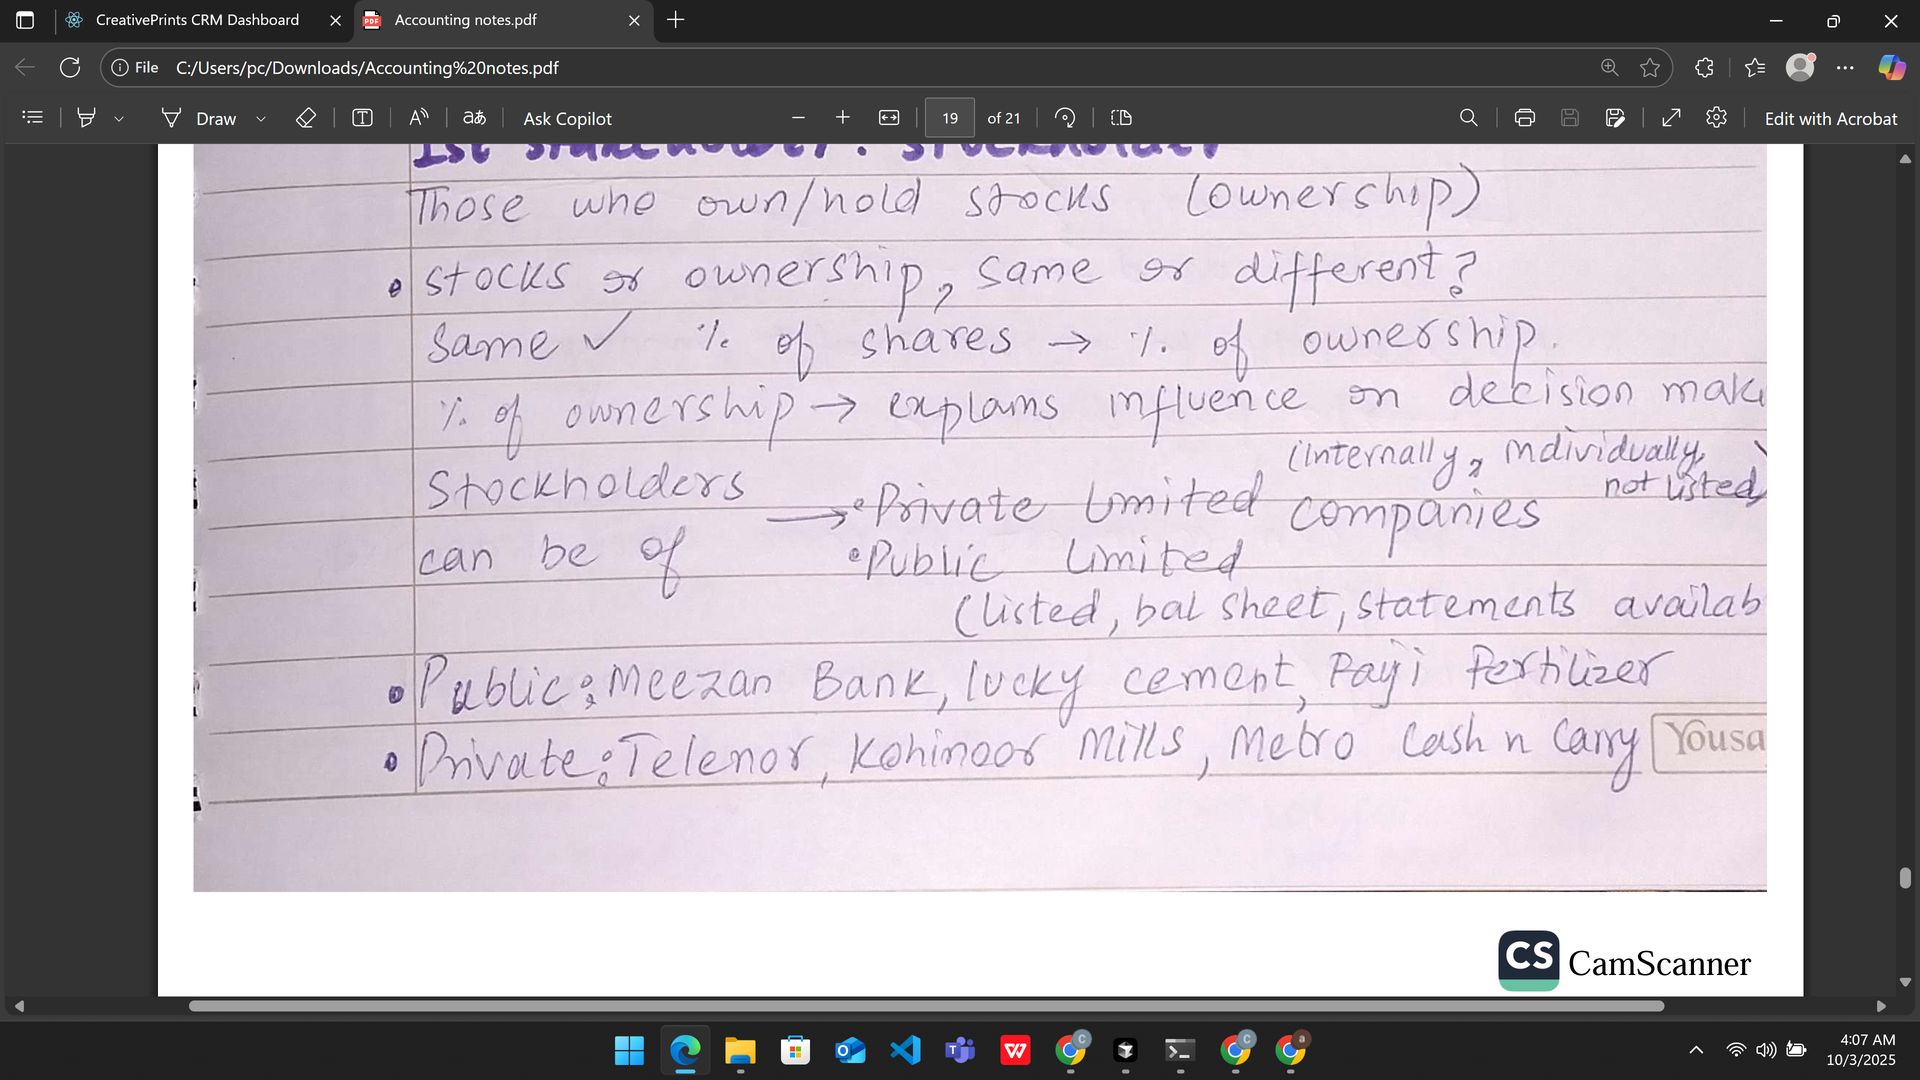 CreativePrints CRM Dashboard
Accounting notes.pdf
File C:/Users/pc/Downloads/Accounting%20notes.pdf
Draw Ask Copilot 19 of 21 Edit with Acrobat
1st stakeholder: stockholder
Those who own/hold stocks (ownership)
• stocks or ownership, same or different?
same ✓ % of shares → % of ownership.
% of ownership → explains influence on decision mak
(internally, individually,
not listed)
Stockholders → • Private Limited companies
can be of • Public Limited
(listed, bal sheet, statements availab
• Public: Meezan Bank, lucky cement, Fayji Fertilizer
• Private: Telenor, Kohinoor Mills, Metro Cash n Carry Yousa
CS CamScanner
4:07 AM
10/3/2025